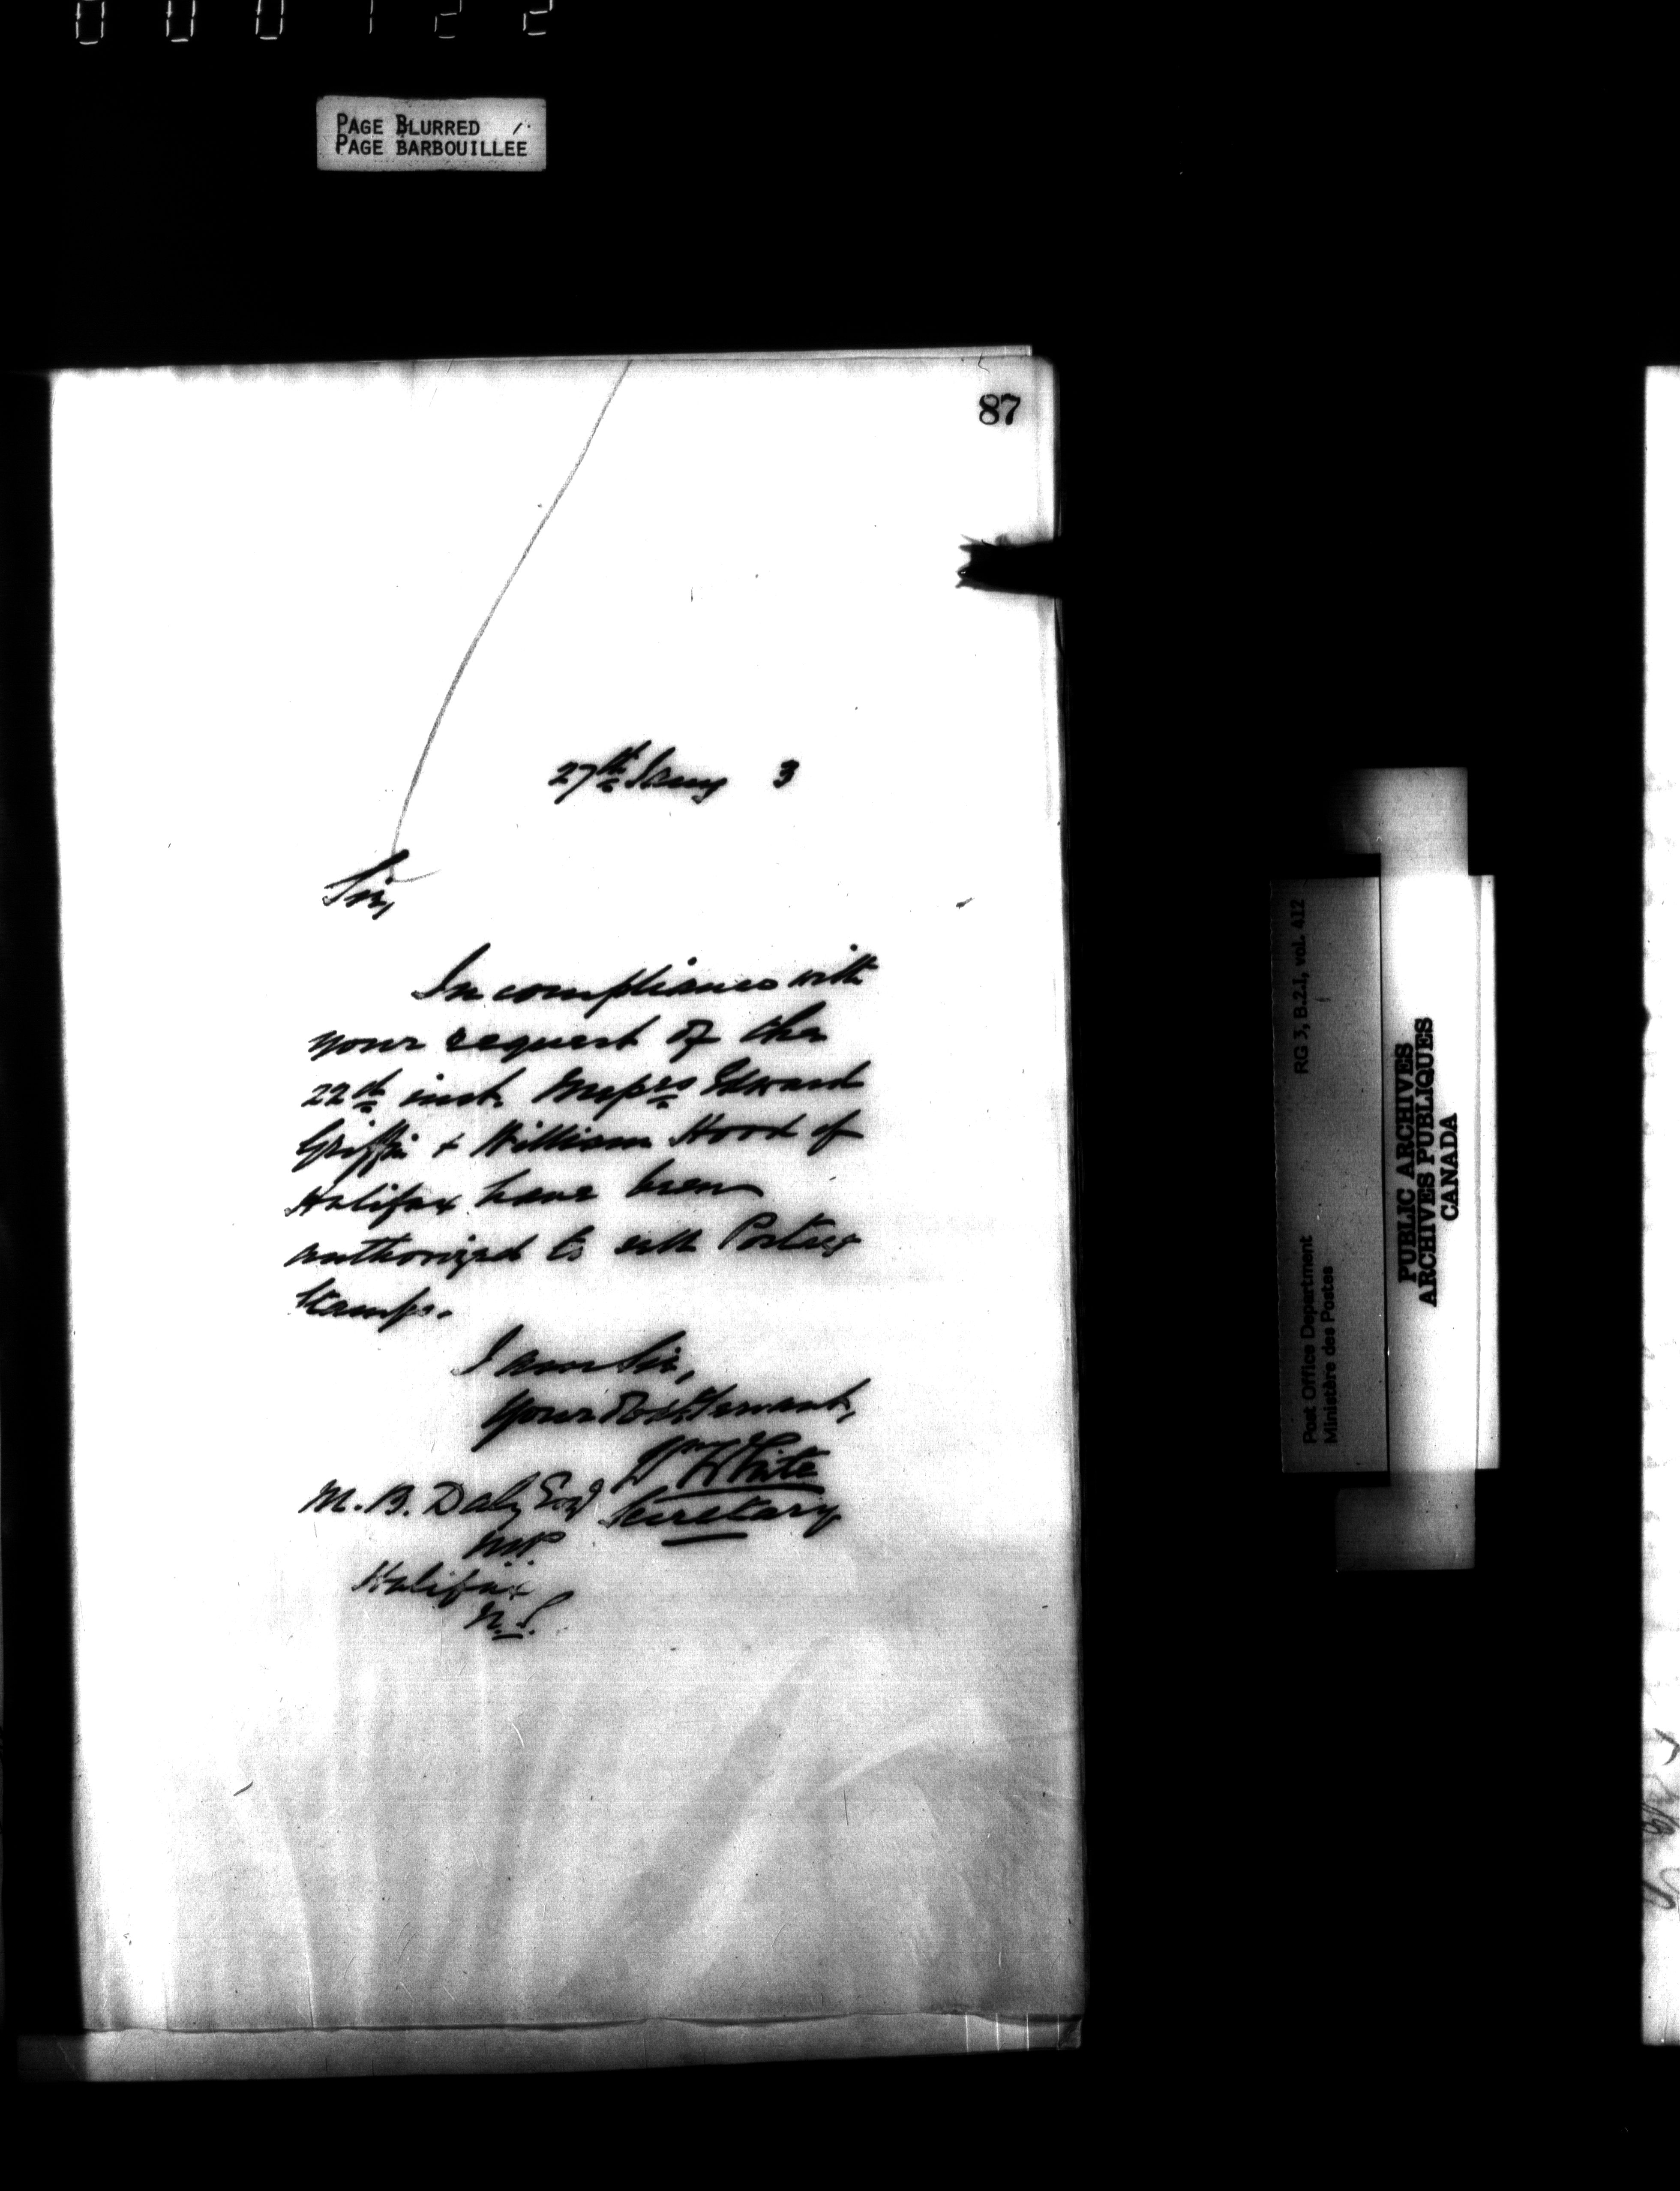 000122
PAGE BLURRED
PAGE BARBOUILLÉE
87
27th Jany 3
Sir,
In compliance with
your request of the
22d inst. Messrs Edward
Griffin & William Hood of
Halifax have been
authorized to sell Postage
Stamps.
I am Sir,
Your Obt. Servant,
Wm White
Secretary
M. B. Daly Esqr
MP
Halifax
N.S.
RG 3, B.2.1, vol. 412
Post Office Department
Ministère des Postes
PUBLIC ARCHIVES
ARCHIVES PUBLIQUES
CANADA